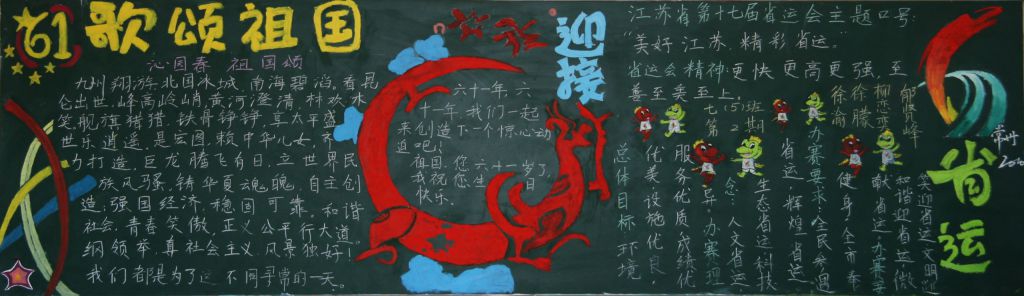 61 歌颂祖国
沁园春 祖国颂
九州翔游,北国冰城,南海碧滔。看昆
仑出世,峰高岭峭,黄河澄清,林欢水
笑,舰旗猎猎,铁骨铮铮,享太平盛
世乐逍遥,是宏图,赖中华儿女,齐
力打造,巨龙腾飞有日,立世界民
族风骚。铸华夏魂魄,自主创
造,强国经济,稳固可靠。和谐
社会,青春笑傲,正义公平行大道。
纲领举,尊社会主义,风景独好!
我们都是为了这不同寻常的一天。
六十一年,六
十一年,我们一起
来创造下一个惊心动
道吧!
祖国,您六十一岁了,
我祝您生日
快乐。
迎接
省运
江苏省第十七届省运会主题口号:
“美好江苏,精彩省运。”
省运会精神:更快更高更强,至
善至美至上。
七(5)班
第2期
总体目标:环境
优美、设施优良,
服务优质、成绩优
年。办赛理
念:人文省运、科技
生态省运
省运,辉煌省运。
办赛要求:全民参与
健身,全市奉
献省运,办赛
和谐迎省运,微
笑迎省运,文明迎
徐梅
徐腾
柳恋雯
郁贤峰